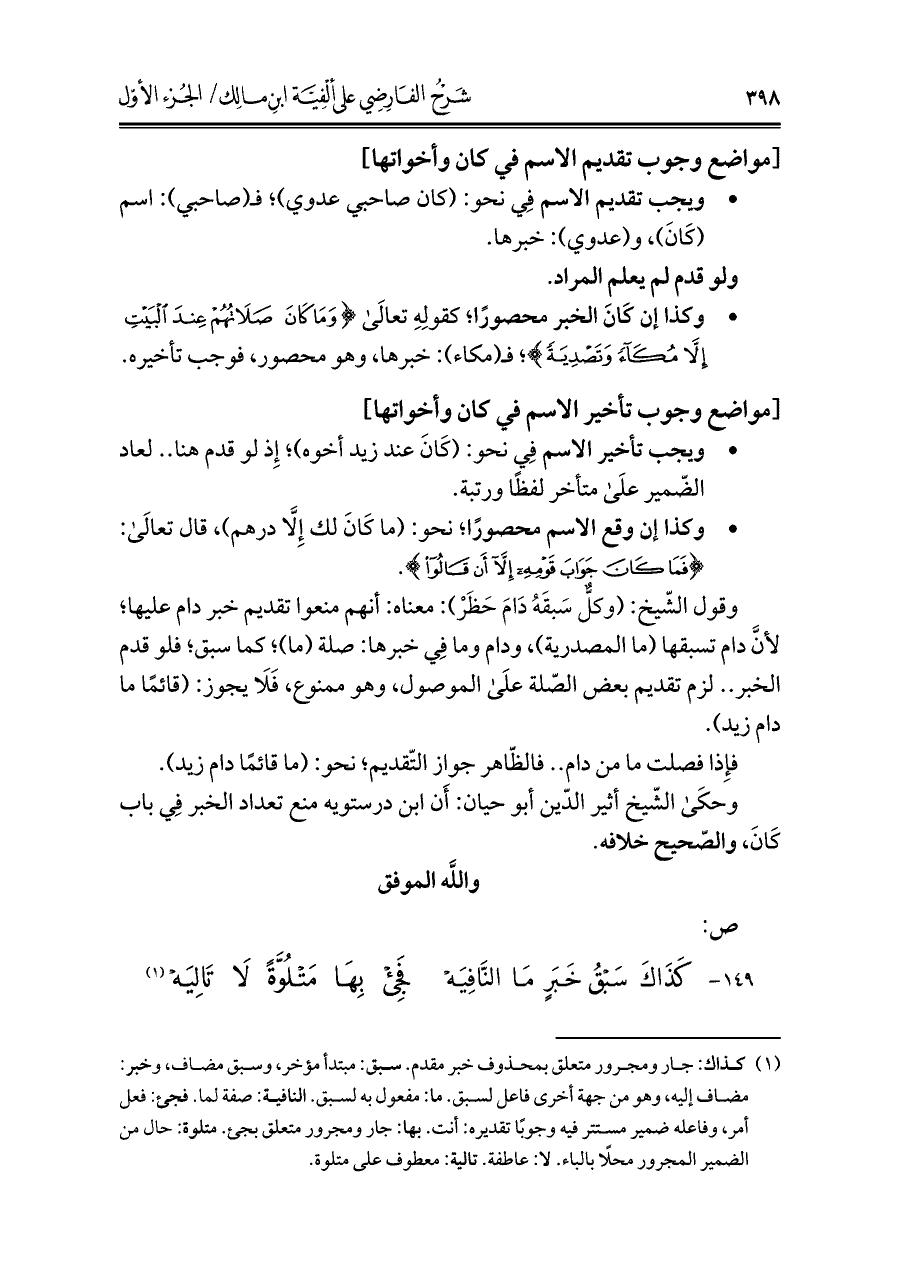 ٣٩٨ شَرْحُ الفَارِضِي عَلى أَلْفِيَّة ابنِ مَالِك/ الجُزء الأوّل
[مواضع وجوب تقديم الاسم في كان وأخواتها]
• ويجب تقديم الاسم فِي نحو: (كان صاحبي عدوي)؛ فـ(صاحبي): اسم
(كَانَ)، و(عدوي): خبرها.
ولو قدم لم يعلم المراد.
• وكذا إن كَانَ الخبر محصورًا؛ كقولِهِ تعالَىٰ ﴿وَمَا كَانَ صَلَاتُهُمْ عِندَ ٱلْبَيْتِ
إِلَّا مُكَآءً وَتَصْدِيَةً﴾؛ فـ(مكاء): خبرها، وهو محصور، فوجب تأخيره.
[مواضع وجوب تأخير الاسم في كان وأخواتها]
• ويجب تأخير الاسم فِي نحو: (كَانَ عند زيد أخوه)؛ إِذ لو قدم هنا.. لعاد
الضّمير علَىٰ متأخر لفظًا ورتبة.
• وكذا إن وقع الاسم محصورًا؛ نحو: (ما كَانَ لك إِلَّا درهم)، قال تعالَىٰ:
﴿فَمَا كَانَ جَوَابَ قَوْمِهِۦٓ إِلَّآ أَن قَالُوا۟﴾.
وقول الشّيخ: (وكلٌّ سَبقَهُ دَامَ حَظَرْ): معناه: أنهم منعوا تقديم خبر دام عليها؛
لأنَّ دام تسبقها (ما المصدرية)، ودام وما فِي خبرها: صلة (ما)؛ كما سبق؛ فلو قدم
الخبر.. لزم تقديم بعض الصّلة علَىٰ الموصول، وهو ممنوع، فَلَا يجوز: (قائمًا ما
دام زيد).
فإِذا فصلت ما من دام.. فالظّاهر جواز التّقديم؛ نحو: (ما قائمًا دام زيد).
وحكَىٰ الشّيخ أثير الدّين أبو حيان: أَن ابن درستويه منع تعداد الخبر فِي باب
كَانَ، والصّحيح خلافه.
واللَّه الموفق
ص:
١٤٩- كَذَاكَ سَبْقُ خَبَرٍ مَا النَّافِيَهْ فَجِئْ بِهَا مَتْلُوَّةً لَا تَالِيَهْ(١)
(١) كـذاك: جـار ومجـرور متعلق بمحـذوف خبر مقدم. سـبق: مبتدأ مؤخر، وسـبق مضـاف، وخبر:
مضـاف إليه، وهو من جهة أخرى فاعل لسـبق. ما: مفعول به لسـبق. النافيـة: صفة لما. فجئ: فعل
أمر، وفاعله ضمير مسـتتر فيه وجوبًا تقديره: أنت. بها: جار ومجرور متعلق بجئ. متلوة: حال من
الضمير المجرور محلًا بالباء. لا: عاطفة. تالية: معطوف على متلوة.